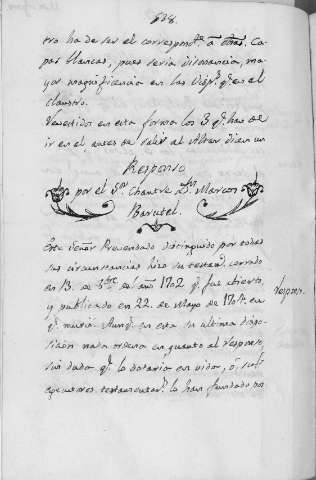 638.
tro ha de ser el correspond.te á dhas. Ca-
pas blancas, pues seria disonancia, ma-
yor magnificencia en las Visp.s q.e en el
claustro.
Vestidos en esta forma los 3 q.e han de
ir en el antes de salir al Altar dicen un
Responso
por el S.or Chantre D.n Marcos
Barutel.
Este Señor Prevendado distinguido por todas
sus circunstancias hizo su testam.to cerrado
en 13. de año 1702 q.e fue abierto,
y publicado en 22. de Mayo de 1704. en
q.e murió. Aunq.e en esta su ultima dispo-
sicion nada ordena en quanto al Responso,
sin duda q.e lo dotaria en vida, ó sus
executores testamentar.s lo han fundado
Respons.